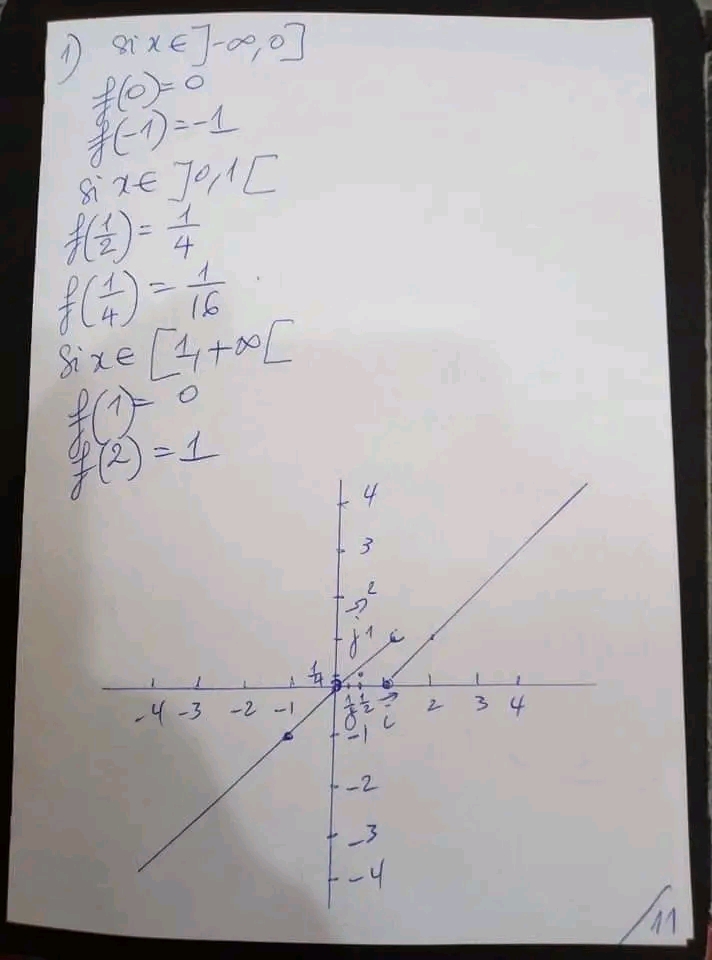 1) Si x ∈ ]-∞, 0]
f(0) = 0
f(-1) = -1
Si x ∈ ]0, 1[
f(1/2) = 1/4
f(1/4) = 1/16
Si x ∈ [1, +∞[
f(1) = 0
f(2) = 1
4
3
2
j 1
1/4
-4 -3 -2 -1 1/2 i 2 3 4
-1
-2
-3
-4
/11